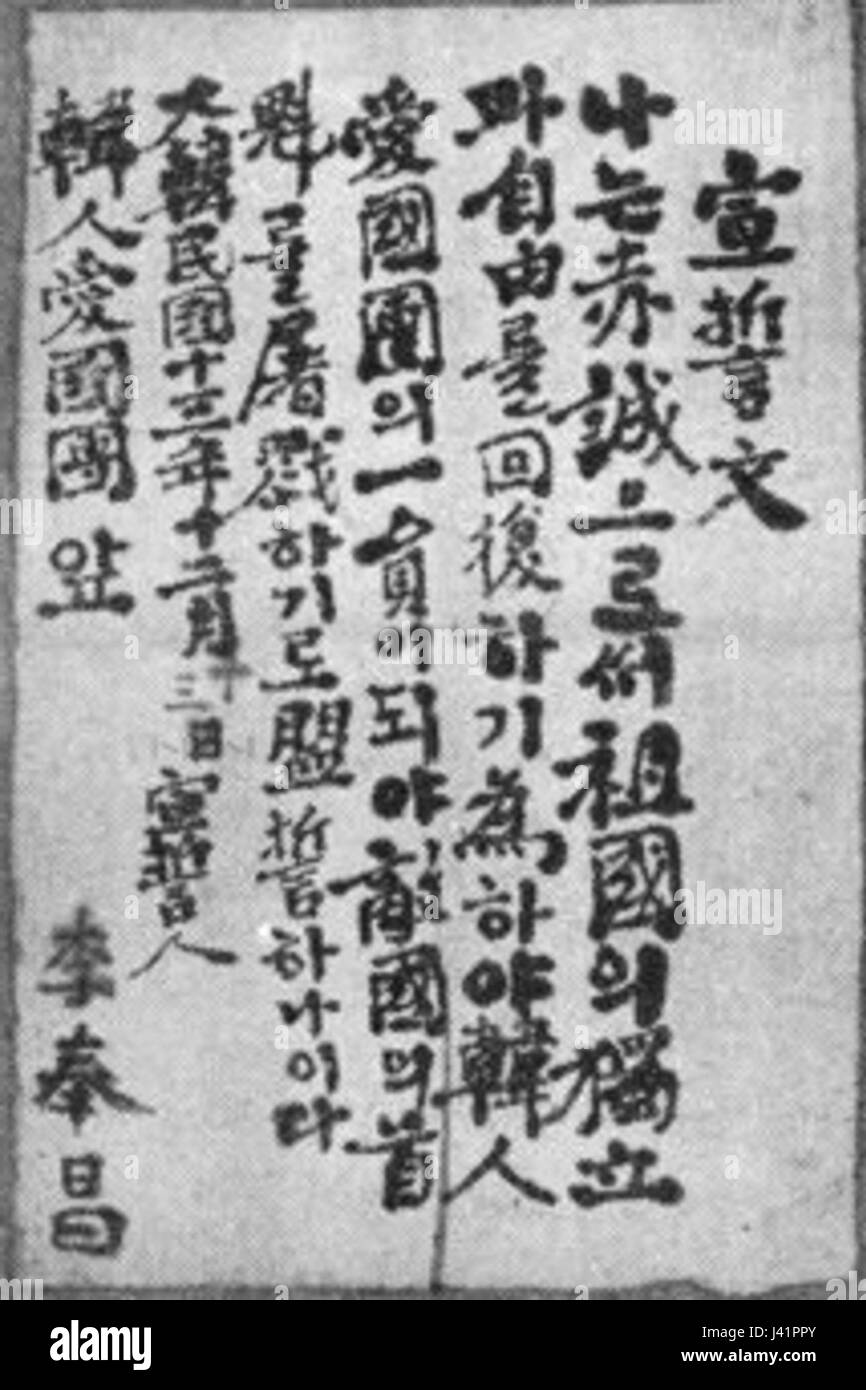 宣誓文
나는赤誠으로써祖國의獨立
과自由를回復하기爲하야韓人
愛國團의一員이되야敵國의首
魁를屠戮하기로盟誓하나이다
大韓民國十三年十二月十三日 宣誓人
韓人愛國團앞 李奉昌
alamy stock photo
J41PPY
www.alamy.com